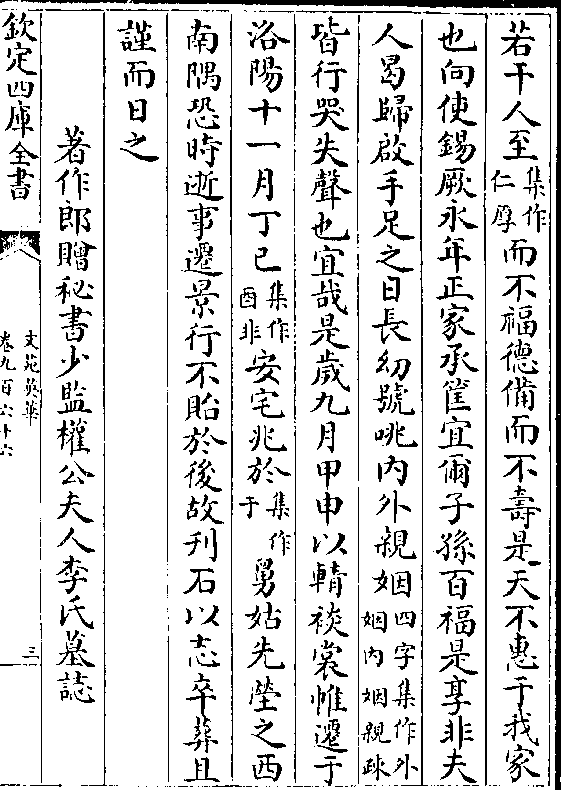 若干人至集作仁厚而不福德備而不壽是天不惠于我家
也向使錫厥永年正家承筐宜爾子孫百福是享非夫
人曷歸啟手足之日長幼號咷内外親姻四字集作外姻内姻親疎
皆行哭失聲也宜哉是歲九月甲申以輤裧裳帷遷于
洛陽十一月丁巳集作酉非安宅兆於集作于舅姑先塋之西
南隅恐時逝事遷景行不貽於後故刋石以志卒葬且
謹而日之
著作郎贈秘書少監權公夫人李氏墓誌
欽定四庫全書
文苑英華
卷九百六十六
三